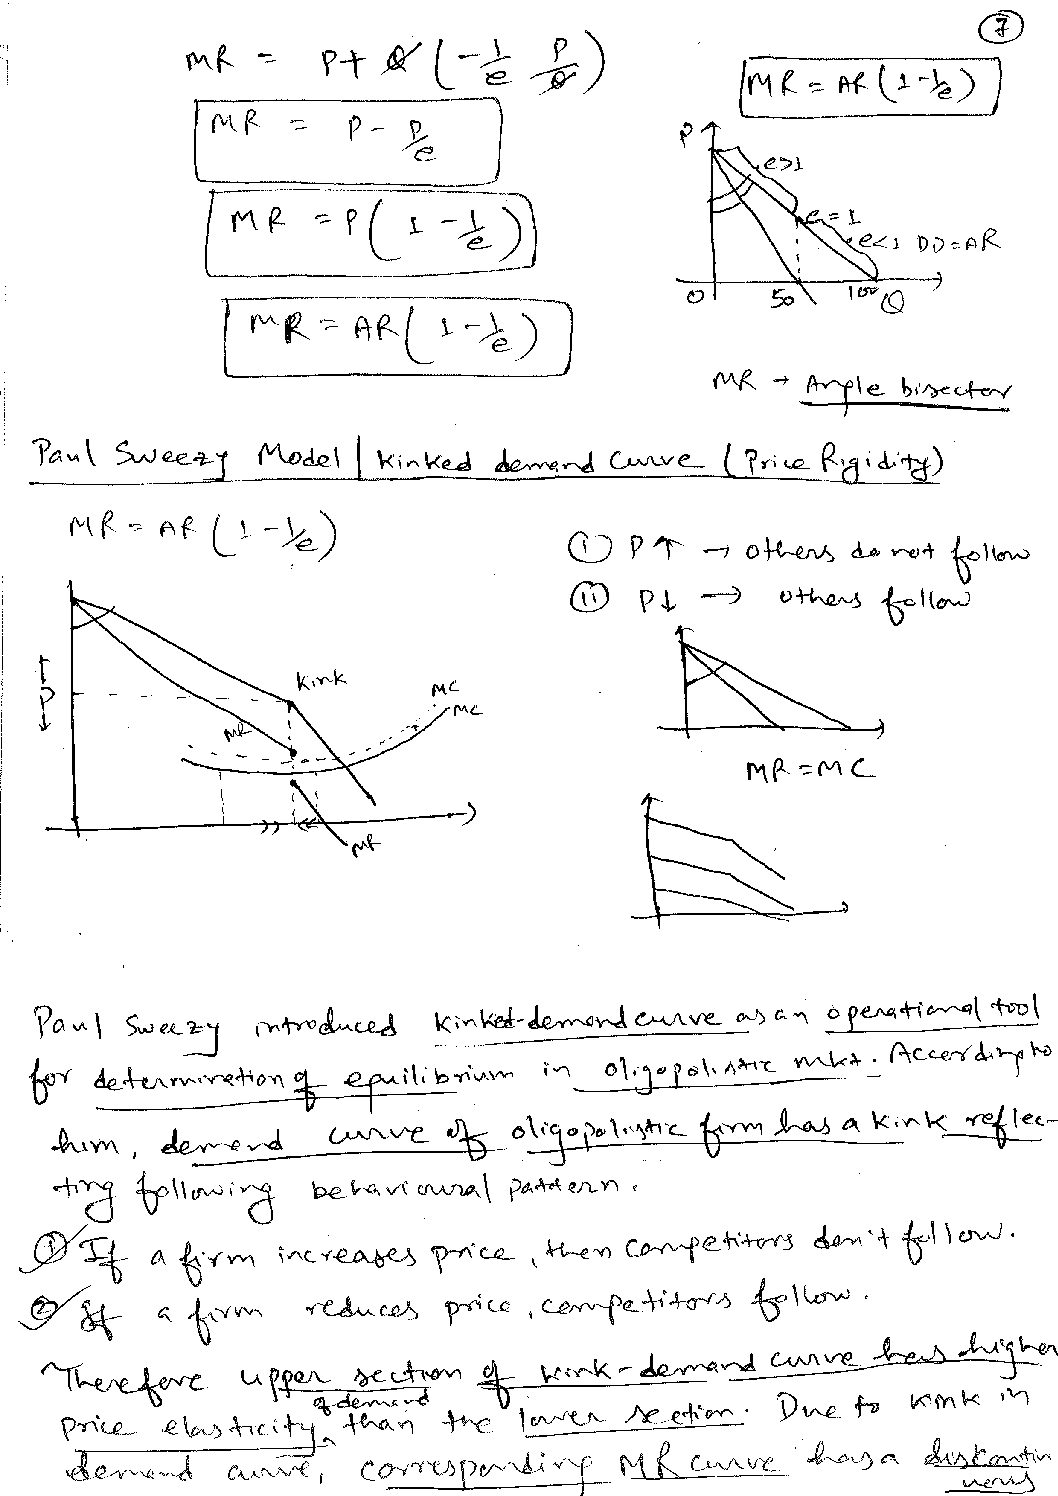 7
MR = P + Q (-1/e P/Q)
MR = AR (1 - 1/e)
MR = P - P/e
MR = P (1 - 1/e)
MR = AR (1 - 1/e)
P
e>1
e=1
e<1 DD=AR
O 50 100 Q
MR → Angle bisector
Paul Sweezy Model | Kinked demand curve (Price Rigidity)
MR = AR (1 - 1/e)
① P↑ → others do not follow
ⅱ P↓ → others follow
↑
P
↓
Kink
MC
MC
MR
MR
MR = MC
Paul Sweezy introduced kinked-demand curve as an operational tool
for determination of equilibrium in oligopolistic mkt. According to
him, demand curve of oligopolistic firm has a kink reflec-
ting following behavioural pattern.
① If a firm increases price, then competitors don't follow.
② If a firm reduces price, competitors follow.
Therefore upper section of kink-demand curve has higher
price elasticity of demand than the lower section. Due to kink in
demand curve, corresponding MR curve has a discontin
nuous